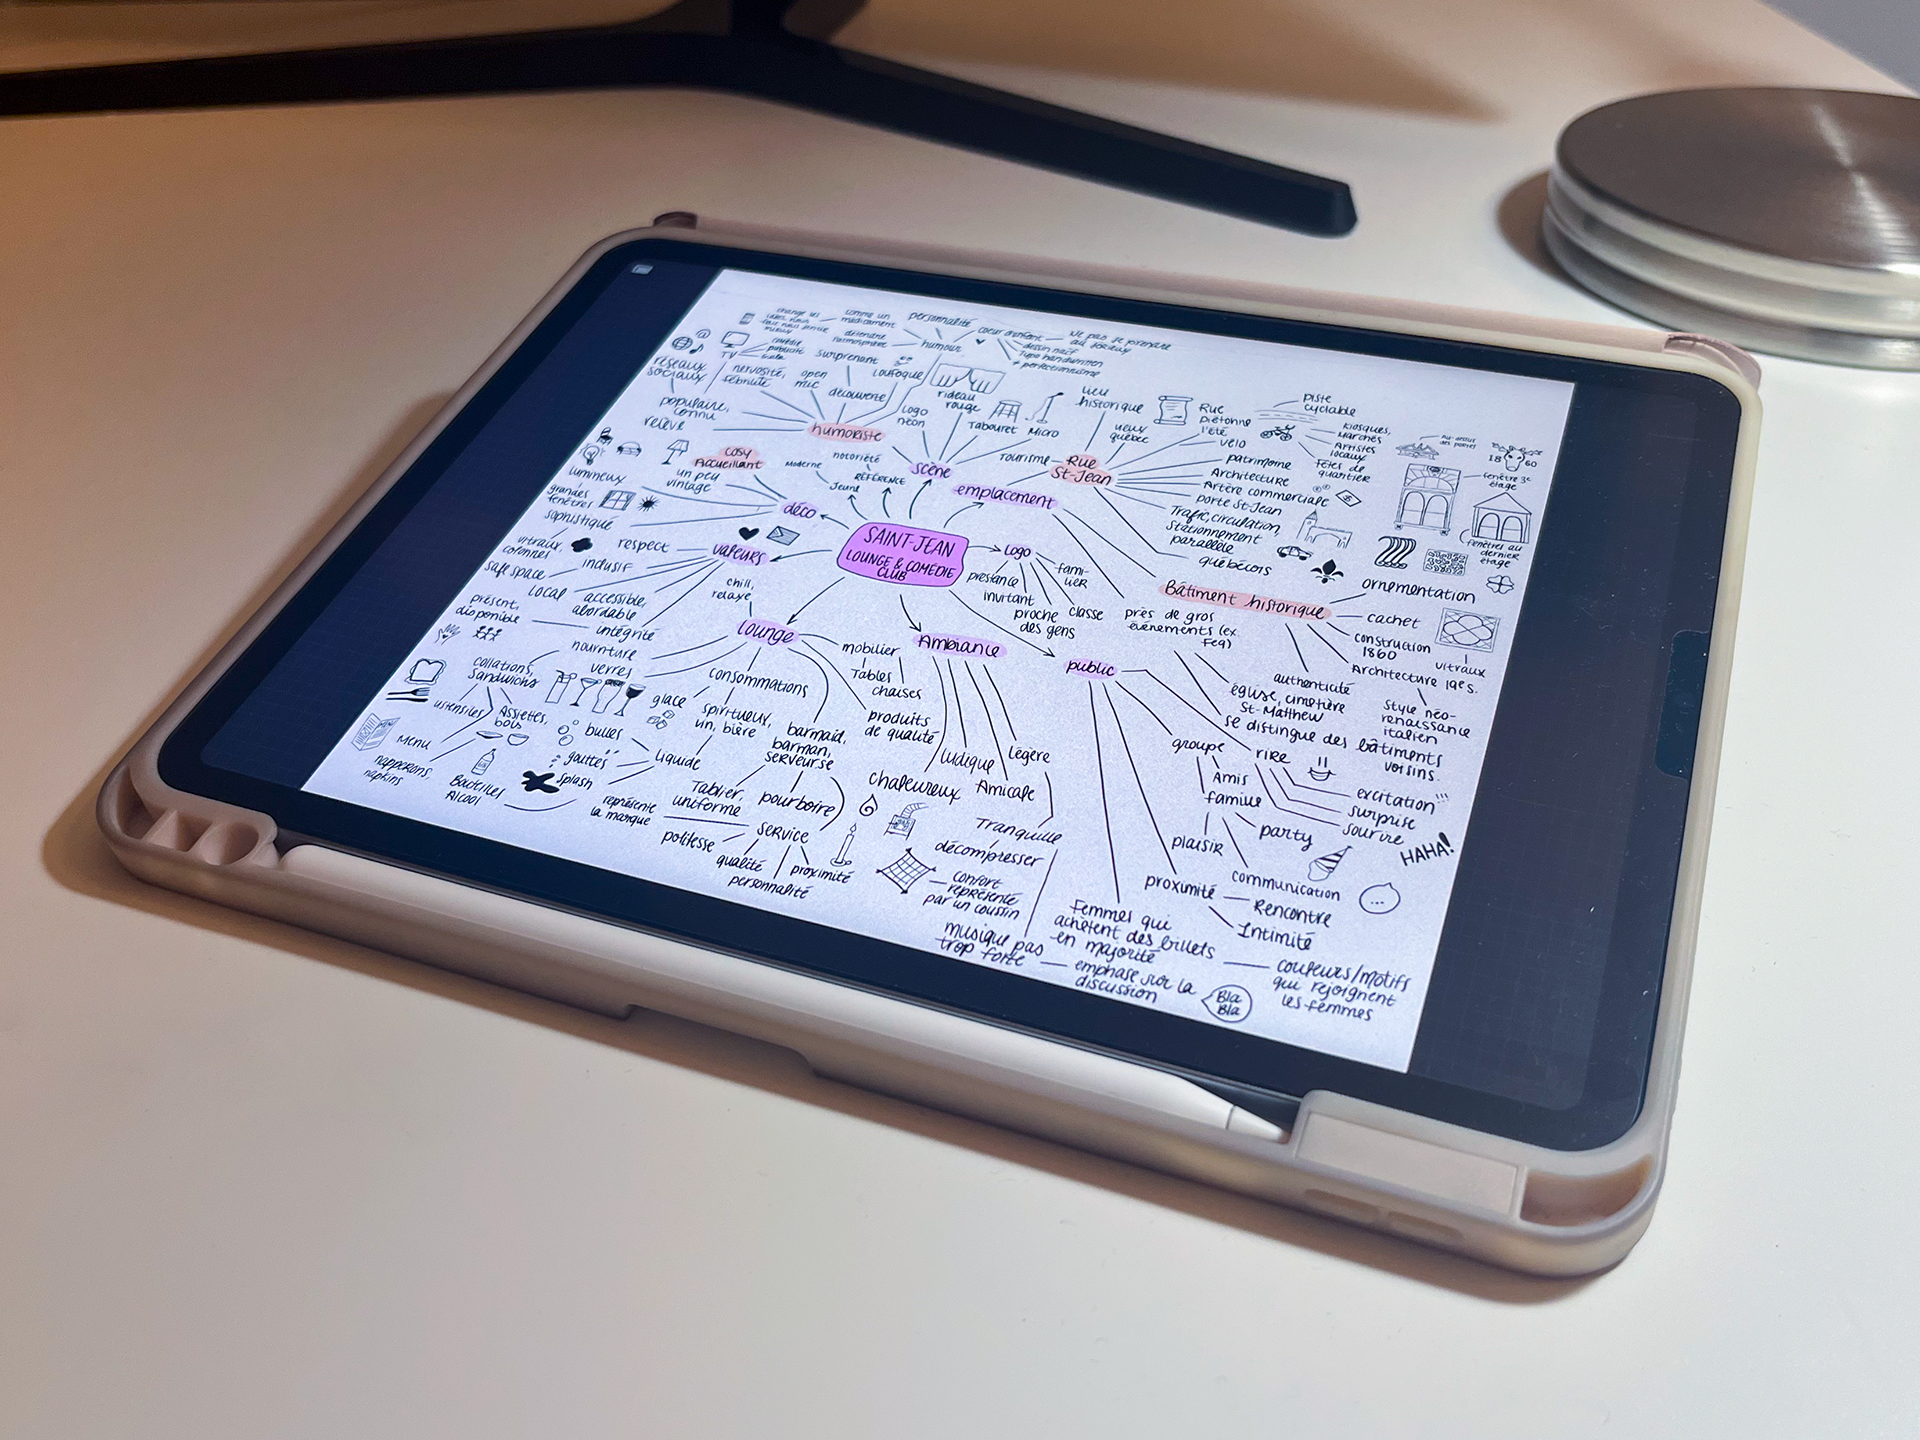 comme un
médicament
détendre
l'atmosphère
personnalité
humour
coeur d'enfant
dessin naïf
typo handwritten
≠ perfectionnisme
Ne pas se prendre
au sérieux
TV
surprenant
loufoque
réseaux
sociaux
nervosité,
fébrilité
open
mic
découverte
populaire,
connu
relève
humoriste
logo
néon
rideau
rouge
Tabouret
Micro
lieu
historique
vieux
québec
Tourisme
Rue
St-Jean
Rue
piétonne
l'été
vélo
piste
cyclable
kiosques,
Marchés
Artistes
locaux
Fêtes de
quartier
patrimoine
Architecture
Artère commerciale
porte St-Jean
Trafic, circulation,
stationnement
parallèle
québécois
18 60
fenêtre 3e
étage
fenêtres au
dernier
étage
cosy
Accueillant
un peu
vintage
Moderne
notoriété
RÉFÉRENCE
Jeune
scène
emplacement
lumineux
grandes
fenêtres
sophistiqué
vitraux,
colonnes
déco
SAINT-JEAN
LOUNGE & COMÉDIE
CLUB
valeurs
respect
inclusif
safe space
local
accessible,
abordable
présent,
disponible
intégrité
chill,
relaxe
Logo
prestance
invitant
proche
des gens
classe
fami-
lier
près de gros
événements (ex
Feq)
Bâtiment historique
ornementation
cachet
construction
1860
Architecture 19e s.
vitraux
Style néo-
renaissance
italien
authenticité
église, cimetière
St-Matthew
se distingue des bâtiments
voisins.
lounge
nourriture
verres
collations,
Sandwichs
ustensiles
Assiettes,
bols
Menu
napperons,
napkins
Bouteilles
Alcool
bulles
gouttes
splash
glace
consommations
spiritueux,
vin, bière
liquide
barmaid,
barman,
serveur.se
mobilier
Tables
chaises
produits
de qualité
Tablier,
uniforme
pourboire
représente
la marque
service
politesse
qualité
personnalité
proximité
Ambiance
ludique
légère
chaleureux
Amicale
Tranquille
décompresser
confort
représenté
par un coussin
musique pas
trop forte
emphase sur la
discussion
Bla
Bla
public
groupe
Amis
famille
plaisir
party
communication
proximité
Rencontre
Intimité
rire
excitation!!!
surprise
sourire
HAHA!
Femmes qui
achètent des billets
en majorité
couleurs/motifs
qui rejoignent
les femmes